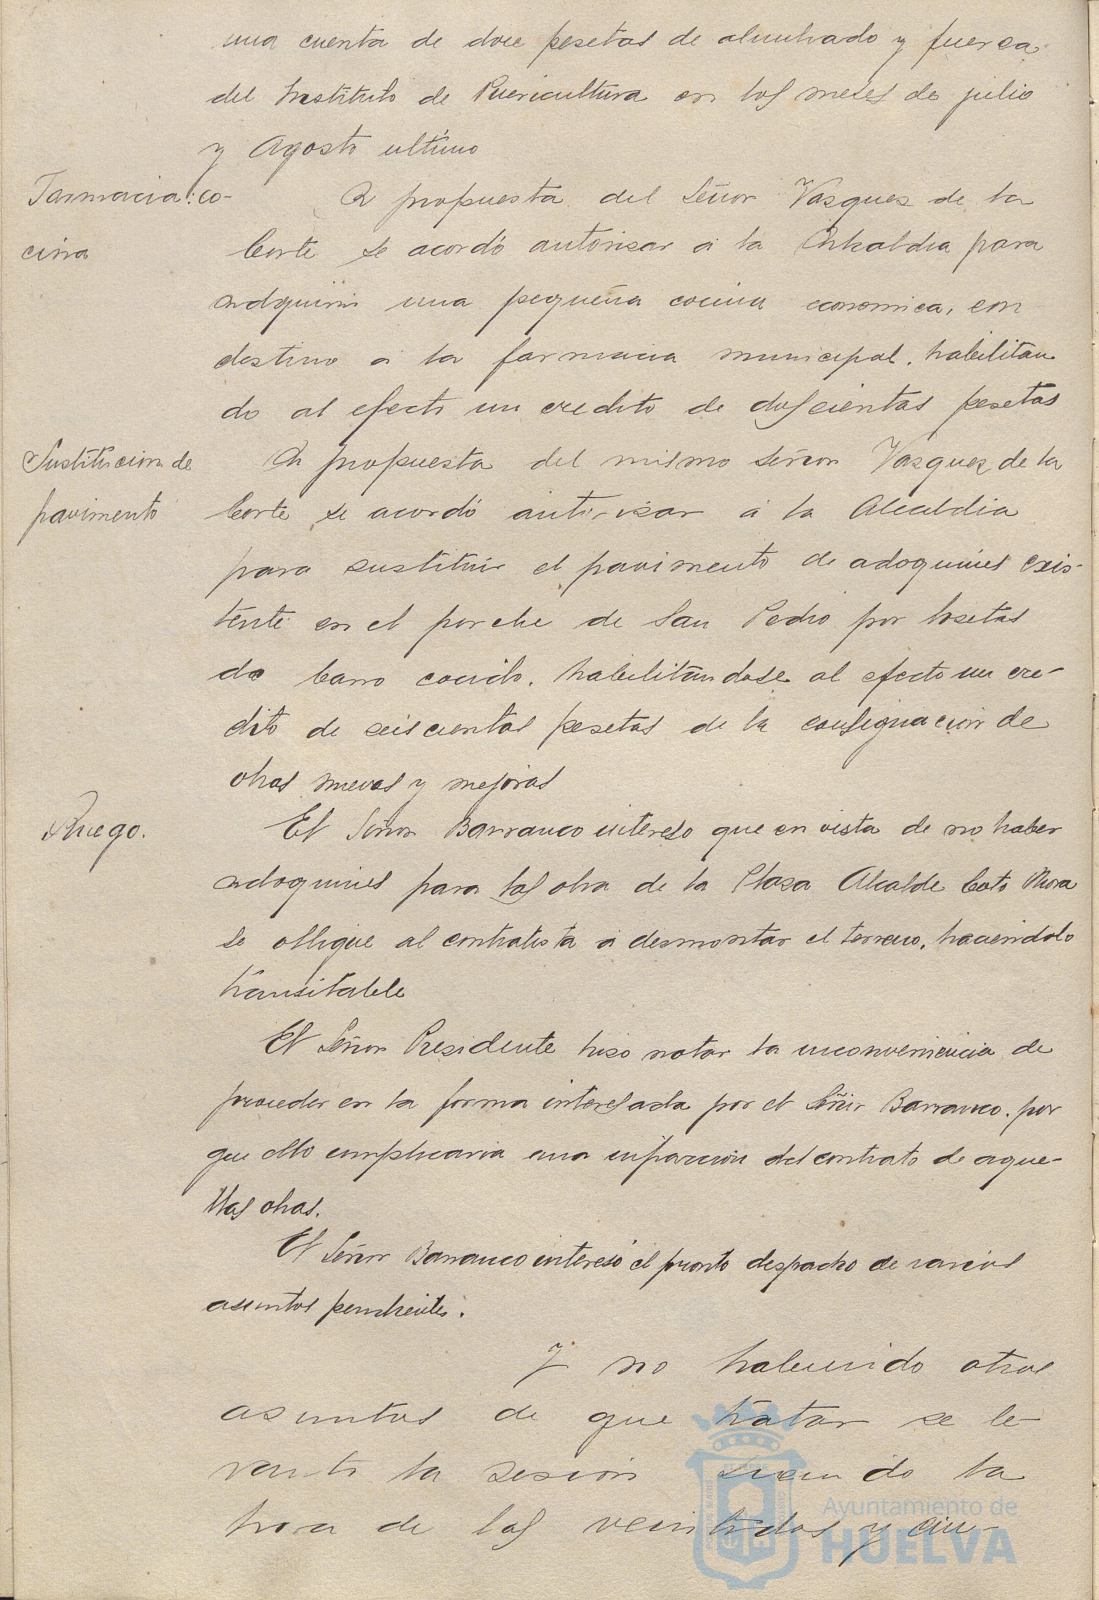 una cuenta de doce pesetas de alumbrado y fuerza
del Instituto de Puericultura en los meses de julio
y Agosto ultimo
Farmacia: co-
cina
A propuesta del Señor Vasquez de la
Corte se acordó autorizar a la Alcaldia para
adquirir una pequeña cocina economica, con
destino a la farmacia municipal, habilitan
do al efecto un credito de doscientas pesetas
Sustitucion de
pavimento
A propuesta del mismo Señor Vasquez de la
Corte se acordó autorizar a la Alcaldia
para sustituir el pavimento de adoquines exis-
tente en el porche de San Pedro por losetas
de barro cocido, habilitandose al efecto un cre-
dito de seiscientas pesetas de la consignacion de
obras nuevas y mejoras
Ruego.
El Señor Barranco intereso que en vista de no haber
adoquines para las obra de la Plaza Alcalde Coto Mora
se obligue al contratista a desmontar el terreno, haciendolo
transitable
El Señor Presidente hizo notar la inconveniencia de
proceder en la forma interesada por el Señor Barranco, por
que ello implicaria una infraccion del contrato de aque-
llas obras.
El Señor Barranco interesó el pronto despacho de varios
asuntos pendientes.
Y no habiendo otros
asuntos de que tratar se le-
vantó la sesion siendo la
hora de las veintidos y cin-
Ayuntamiento de
HUELVA